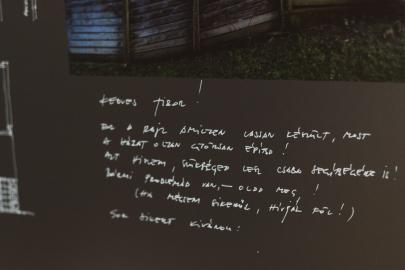 KEDVES TIBOR!
EZ A RAJZ AMILYEN LASSAN KÉSZÜLT, MOST
A HÁZAT OLYAN GYORSAN ÉPÍTSD!
AZT HISZEM, SZÜKSÉGED LESZ CSABA SEGÍTSÉGÉRE IS!
BÁRMI PROBLÉMÁD VAN, — OLDD MEG!
(HA MÉGSEM SIKERÜL, HÍVJÁL FÖL!)
SOK SIKERT KIVÁNOK: